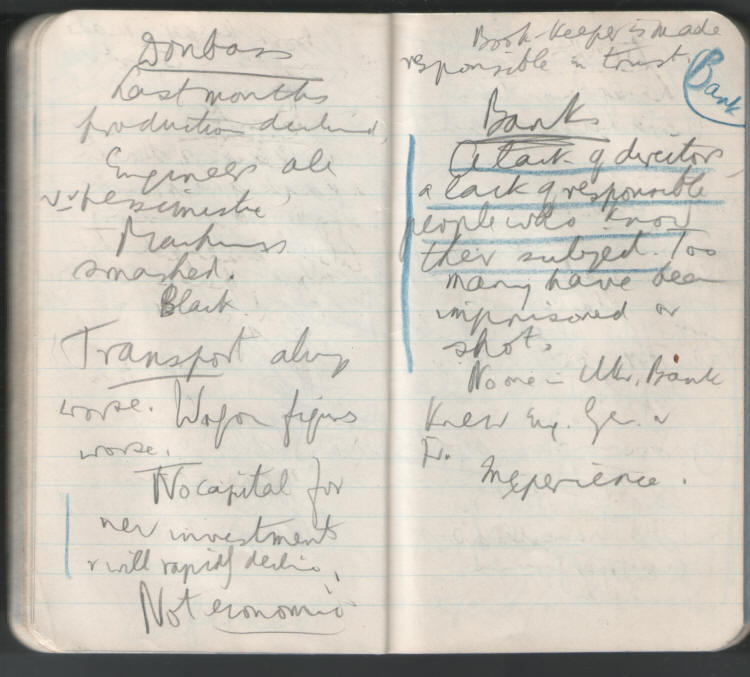 Donbass
Last months
production declined,
Engineers all
v. pessimistic,
Machines
smashed.
Black.
Transport along
worse. Wagon figures
worse.
No capital for
new investments
& will rapidly decline,
Not economic
Book-keeper is made
responsible in trust.
Bank
Banks
A lack of directors,
a lack of responsible
people who know
their subject. Too
many have been
imprisoned or
shot.
No one in Ukr. Bank
knew Eng. Ger. or
Fr.
Inexperience.